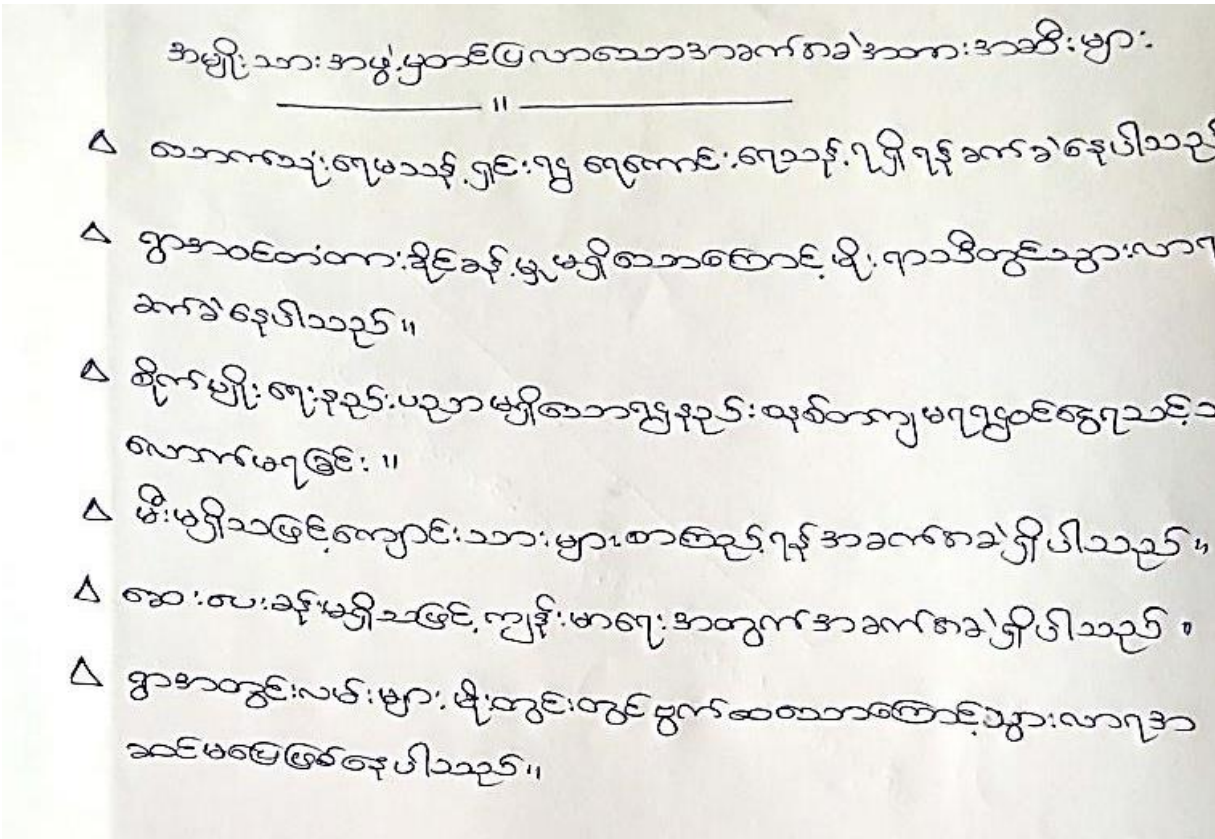 အမျိုးသားအဖွဲ့မှတင်ပြလာသောအခက်အခဲအတားအဆီးများ
॥
△ သောက်သုံးရေမသန့်ရှင်း၍ ရေကောင်းရေသန့်ရရှိရန်ခက်ခဲနေပါသည်
△ ရွာအဝင်တံတားခိုင်ခန့်မှုမရှိသောကြောင့်မိုးရာသီတွင်သွားလာရ
ခက်ခဲနေပါသည်။
△ စိုက်မျိုးရေးနည်းပညာမရှိသော၍နည်းစနစ်တကျမရ၍ဝင်ငွေရသင့်သ
လောက်မရခြင်း။
△ မီးမရှိသဖြင့်ကျောင်းသားများစာကြည့်ရန်အခက်အခဲရှိပါသည်။
△ ဆေးပေးခန်းမရှိသဖြင့်ကျန်းမာရေးအတွက်အခက်အခဲရှိပါသည်။
△ ရွာအတွင်းလမ်းများမိုးတွင်းတွင်ဗွက်ထသောကြောင့်သွားလာရအ
ဆင်မပြေဖြစ်နေပါသည်။